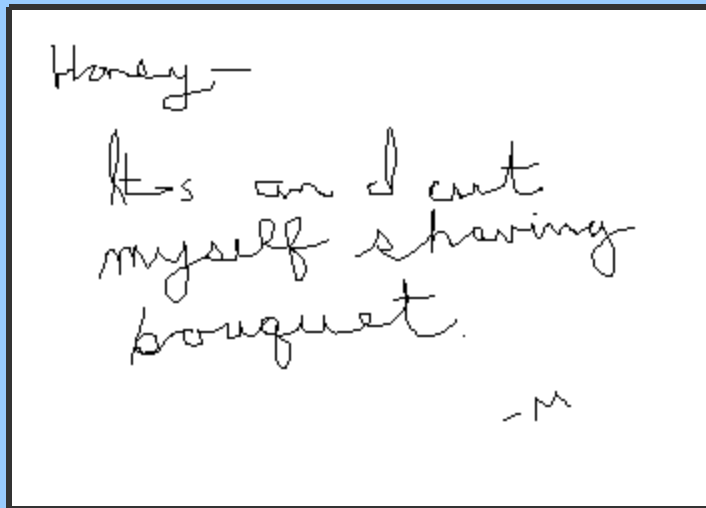 Honey,—
Its an I cut
myself shaving
bouquet.
-M